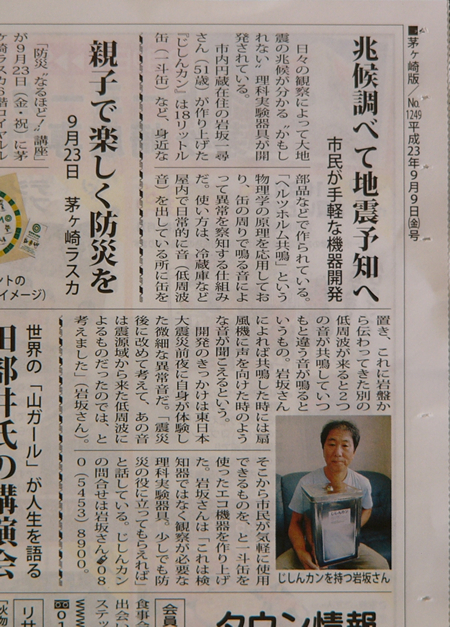 ■茅ヶ崎版/No.1249平成23年9月9日(金)号
兆候調べて地震予知へ
市民が手軽な機器開発
日々の観察によって大地
震の兆候が分かる〝かもし
れない〟理科実験器具が開
発されている。
市内円蔵在住の岩坂一尋
さん(51歳)が作り上げた
『じしんカン』は18リットル
缶(一斗缶)など、身近な
部品などで作られている。
「ヘルツホルム共鳴」という
物理学の原理を応用してお
り、缶の周りで鳴る音によ
って異常を察知する仕組み
だ。使い方は、冷蔵庫など
屋内で日常的に音(低周波
音)を出している所に缶を
置き、これに岩盤か
ら伝わってきた別の
低周波が来ると2つ
の音が共鳴していつ
もと違う音が鳴ると
いうもの。岩坂さん
によれば共鳴した時には扇
風機に声を向けた時のよう
な音が聞こえるという。
開発のきっかけは東日本
大震災前夜に自身が体験し
た微細な異常音だ。「震災
後に改めて考えて、あの音
は震源域から来た低周波に
よるものだったのでは、と
考えました」(岩坂さん)。
そこから市民が気軽に使用
できるものを、と一斗缶を
使ったエコ機器を作り上げ
た。岩坂さんは「これは検
知器ではなく観察が必要な
理科実験器具。少しでも防
災の役に立ってもらえれば」
と話している。じしんカン
の問合せは岩坂さん
08
0(5453)8900。
じしんカンを持つ岩坂さん
親子で楽しく防災を
9月23日 茅ヶ崎ラスカ
「防災〝なるほど!〟講座」
が9月23日(金・祝)に茅
ヶ崎ラスカ6階
ントの
イメージ)
世界の「山ガール」が人生を語る
田部井氏の講演会
タウン情報
会員
食事会
出会い
ステッ
www.
リサ